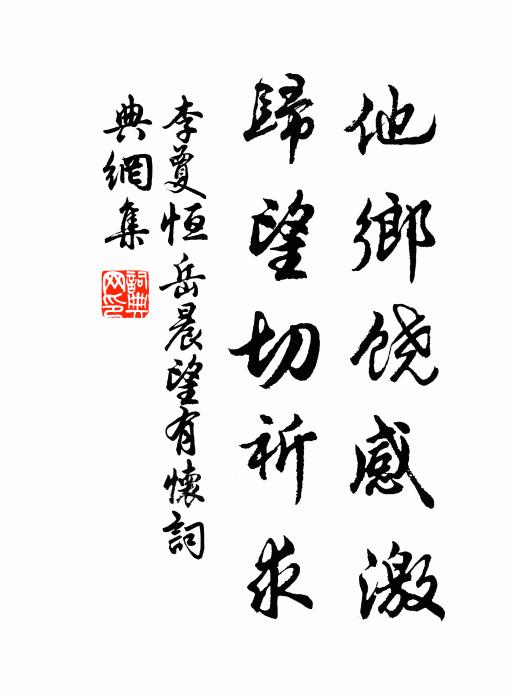 他鄉饒感激
歸望切祈求
李夐恒岳晨望有懷詞
典網集
詞典
网印